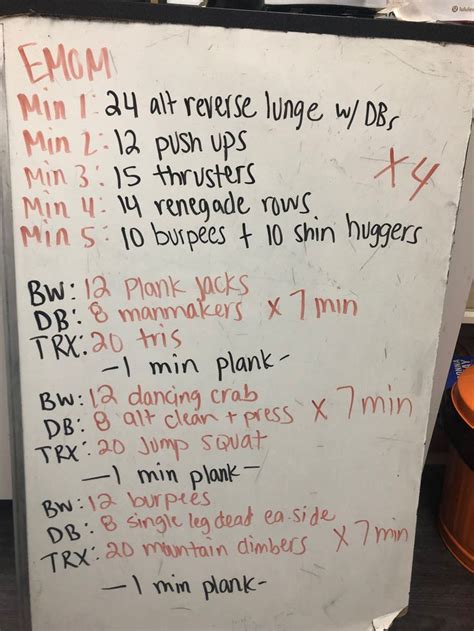 EMOM
Min 1: 24 alt reverse lunge w/ DBs
Min 2: 12 push ups
Min 3: 15 thrusters
x4
Min 4: 14 renegade rows
Min 5: 10 burpees + 10 shin huggers
BW: 12 Plank jacks
DB: 8 manmakers x 7 min
TRX: 20 tris
-1 min plank-
BW: 12 dancing crab
DB: 8 alt clean + press x 7 min
TRX: 20 Jump squat
-1 min plank-
BW: 12 burpees
DB: 8 single leg dead ea. side
TRX: 20 mountain climbers x 7 min
-1 min plank-